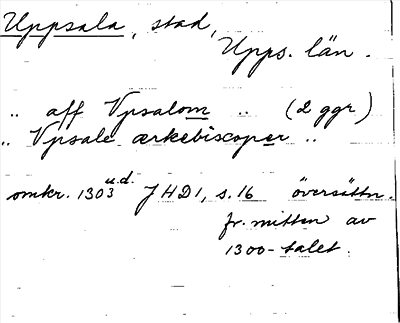 Uppsala, stad,
Upps. län.
.. aff Vpsalom .. (2 ggr)
.. Vpsale ærkebiscoper ..
omkr. 1303 u.d. JHD1, s. 16 översättn.
fr. mitten av
1300-talet.